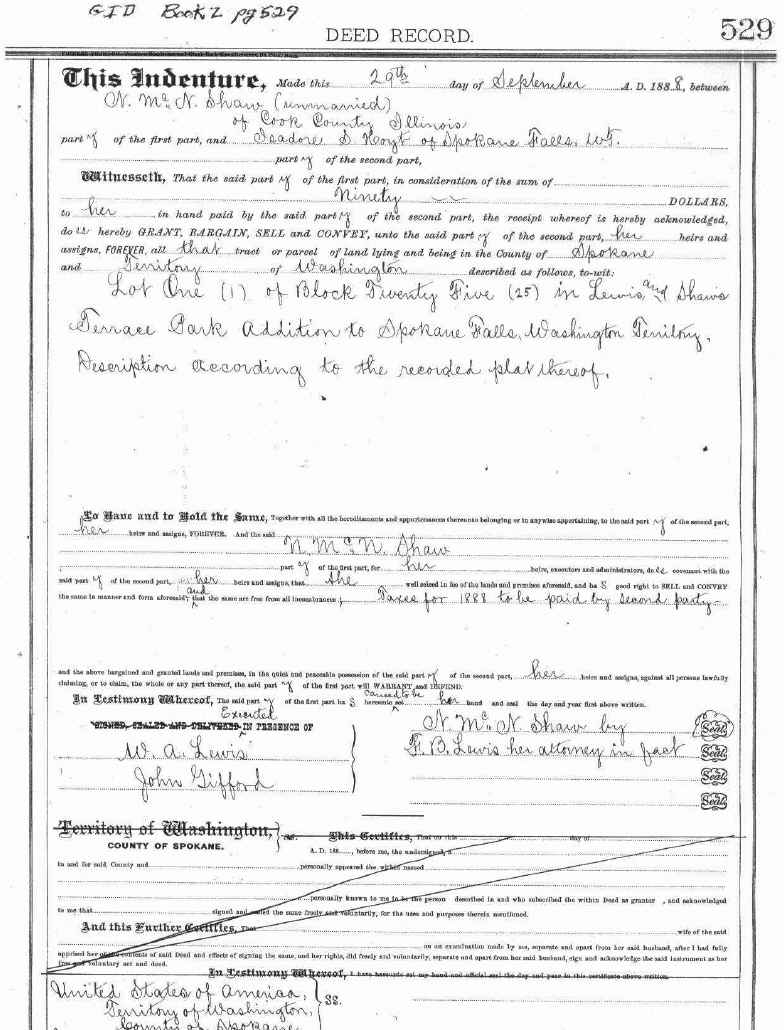 GID Book Z pg 529
DEED RECORD.
529
This Indenture, Made this 29th day of September A. D. 1888, between
N. McN. Shaw (unmarried)
of Cook County Illinois
party of the first part, and Isadore S Hoyt of Spokane Falls, W.T.
party of the second part,
Witnesseth, That the said party of the first part, in consideration of the sum of
Ninety DOLLARS,
to her in hand paid by the said party of the second part, the receipt whereof is hereby acknowledged,
does hereby GRANT, BARGAIN, SELL and CONVEY, unto the said party of the second part, her heirs and
assigns, FOREVER, all that tract or parcel of land lying and being in the County of Spokane
and Territory of Washington described as follows, to-wit:
Lot One (1) of Block Twenty Five (25) in Lewis and Shaws
Terrace Park Addition to Spokane Falls, Washington Territory.
Description according to the recorded plat thereof.
To Have and to Hold the Same, Together with all the hereditaments and appurtenances thereunto belonging or in anywise appertaining, to the said party of the second part,
her heirs and assigns, FOREVER. And the said
N. McN. Shaw
party of the first part, for her heirs, executors and administrators, does covenant with the
said party of the second part, her heirs and assigns, that she well seized in fee of the lands and premises aforesaid, and has good right to SELL and CONVEY
the same in manner and form aforesaid; and that the same are free from all incumbrances; Taxes for 1888 to be paid by second party
and the above bargained and granted lands and premises, in the quiet and peaceable possession of the said party of the second part, her heirs and assigns, against all persons lawfully
claiming, or to claim, the whole or any part thereof, the said party of the first part will WARRANT and DEFEND.
In Testimony Whereof, The said party of the first part has caused to be hereunto set her hand and seal the day and year first above written.
Executed
SIGNED, SEALED AND DELIVERED IN PRESENCE OF
N. McN. Shaw by Seal
W. A. Lewis
F. B. Lewis her attorney in fact Seal
John Gifford
Seal
Seal
Territory of Washington, ss. This Certifies, That on this day of
COUNTY OF SPOKANE.
A. D. 188 , before me, the undersigned, a
in and for said County and personally appeared the within named
personally known to me to be the person described in and who subscribed the within Deed as grantor , and acknowledged
to me that signed and sealed the same freely and voluntarily, for the uses and purposes therein mentioned.
And this Further Certifies, That wife of the said
on an examination made by me, separate and apart from her said husband, after I had fully
apprised her of the contents of said Deed and effects of signing the same, and her rights, did freely and voluntarily, separate and apart from her said husband, sign and acknowledge the said instrument as her
free and voluntary act and deed.
In Testimony Whereof, I have hereunto set my hand and official seal the day and year in this certificate above written.
United States of America,
Territory of Washington, SS.
County of Spokane